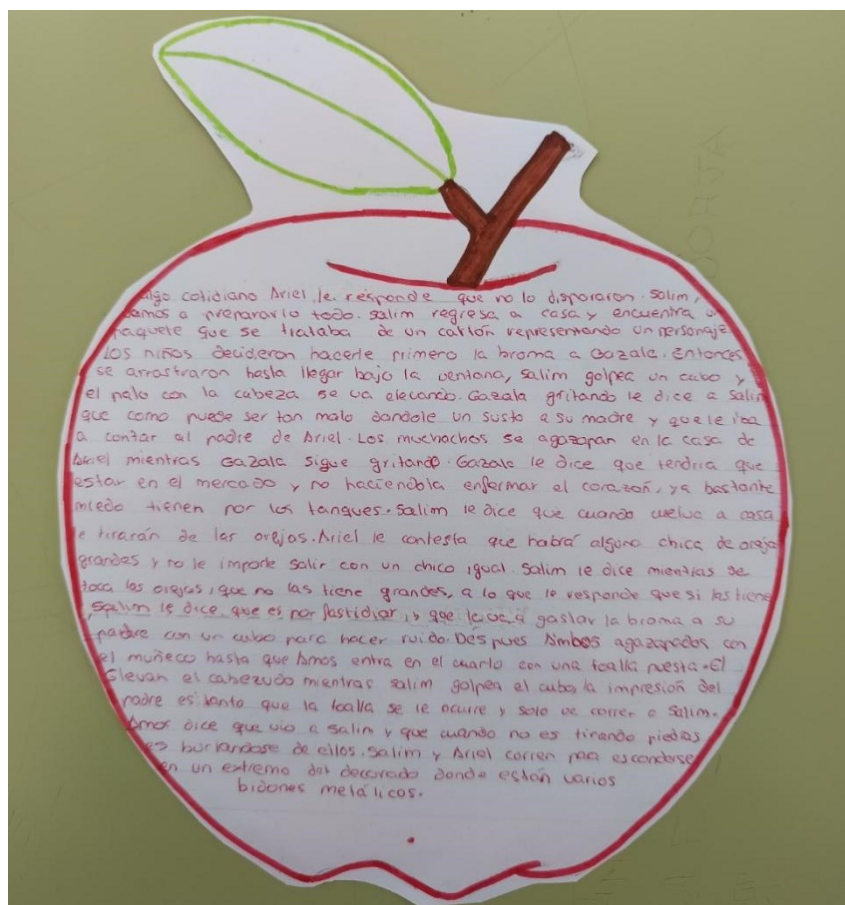 algo cotidiano Ariel le responde que no lo dispararon. Salim,
vamos a prepararlo todo. Salim regresa a casa y encuentra u
paquete que se trataba de un cartón representando un personaje
Los niños decidieron hacerle primero la broma a Gazala. Entonces
se arrastraron hasta llegar bajo la ventana, Salim golpea un cubo y
el palo con la cabeza se va elevando. Gazala gritando le dice a Salim
que como puede ser tan malo dandole un susto a su madre y que le iba
a contar al padre de Ariel. Los muchachos se agazapan en la casa de
Ariel mientras Gazala sigue gritando. Gazala le dice que tendria que
estar en el mercado y no haciendola enfermar el corazoñ, ya bastante
miedo tienen por los tanques. Salim le dice que cuando vuelva a casa
le tirarán de las orejas. Ariel le contesta que habrá alguna chica de oreja
grandes y no le importe salir con un chico igual. Salim le dice mientras se
toca las orejas, que no las tiene grandes, a lo que le responde que si las tiene
Salim le dice que es por fastidiar, y que le va a gastar la broma a su
padre con un cubo para hacer ruido. Después Ambos agazapados con
el muñeco hasta que Amos entra en el cuarto con una toalla puesta. El
Elevan el cabezudo mientras Salim golpea el cubo la impresión del
padre es tanto que la toalla se le ocurre y solo ve correr a Salim.
Amos dice que vio a Salim y que cuando no es tirando piedras
es burlandose de ellos. Salim y Ariel corren para esconderse
en un extremo del decorado donde están varios
bidones metálicos.